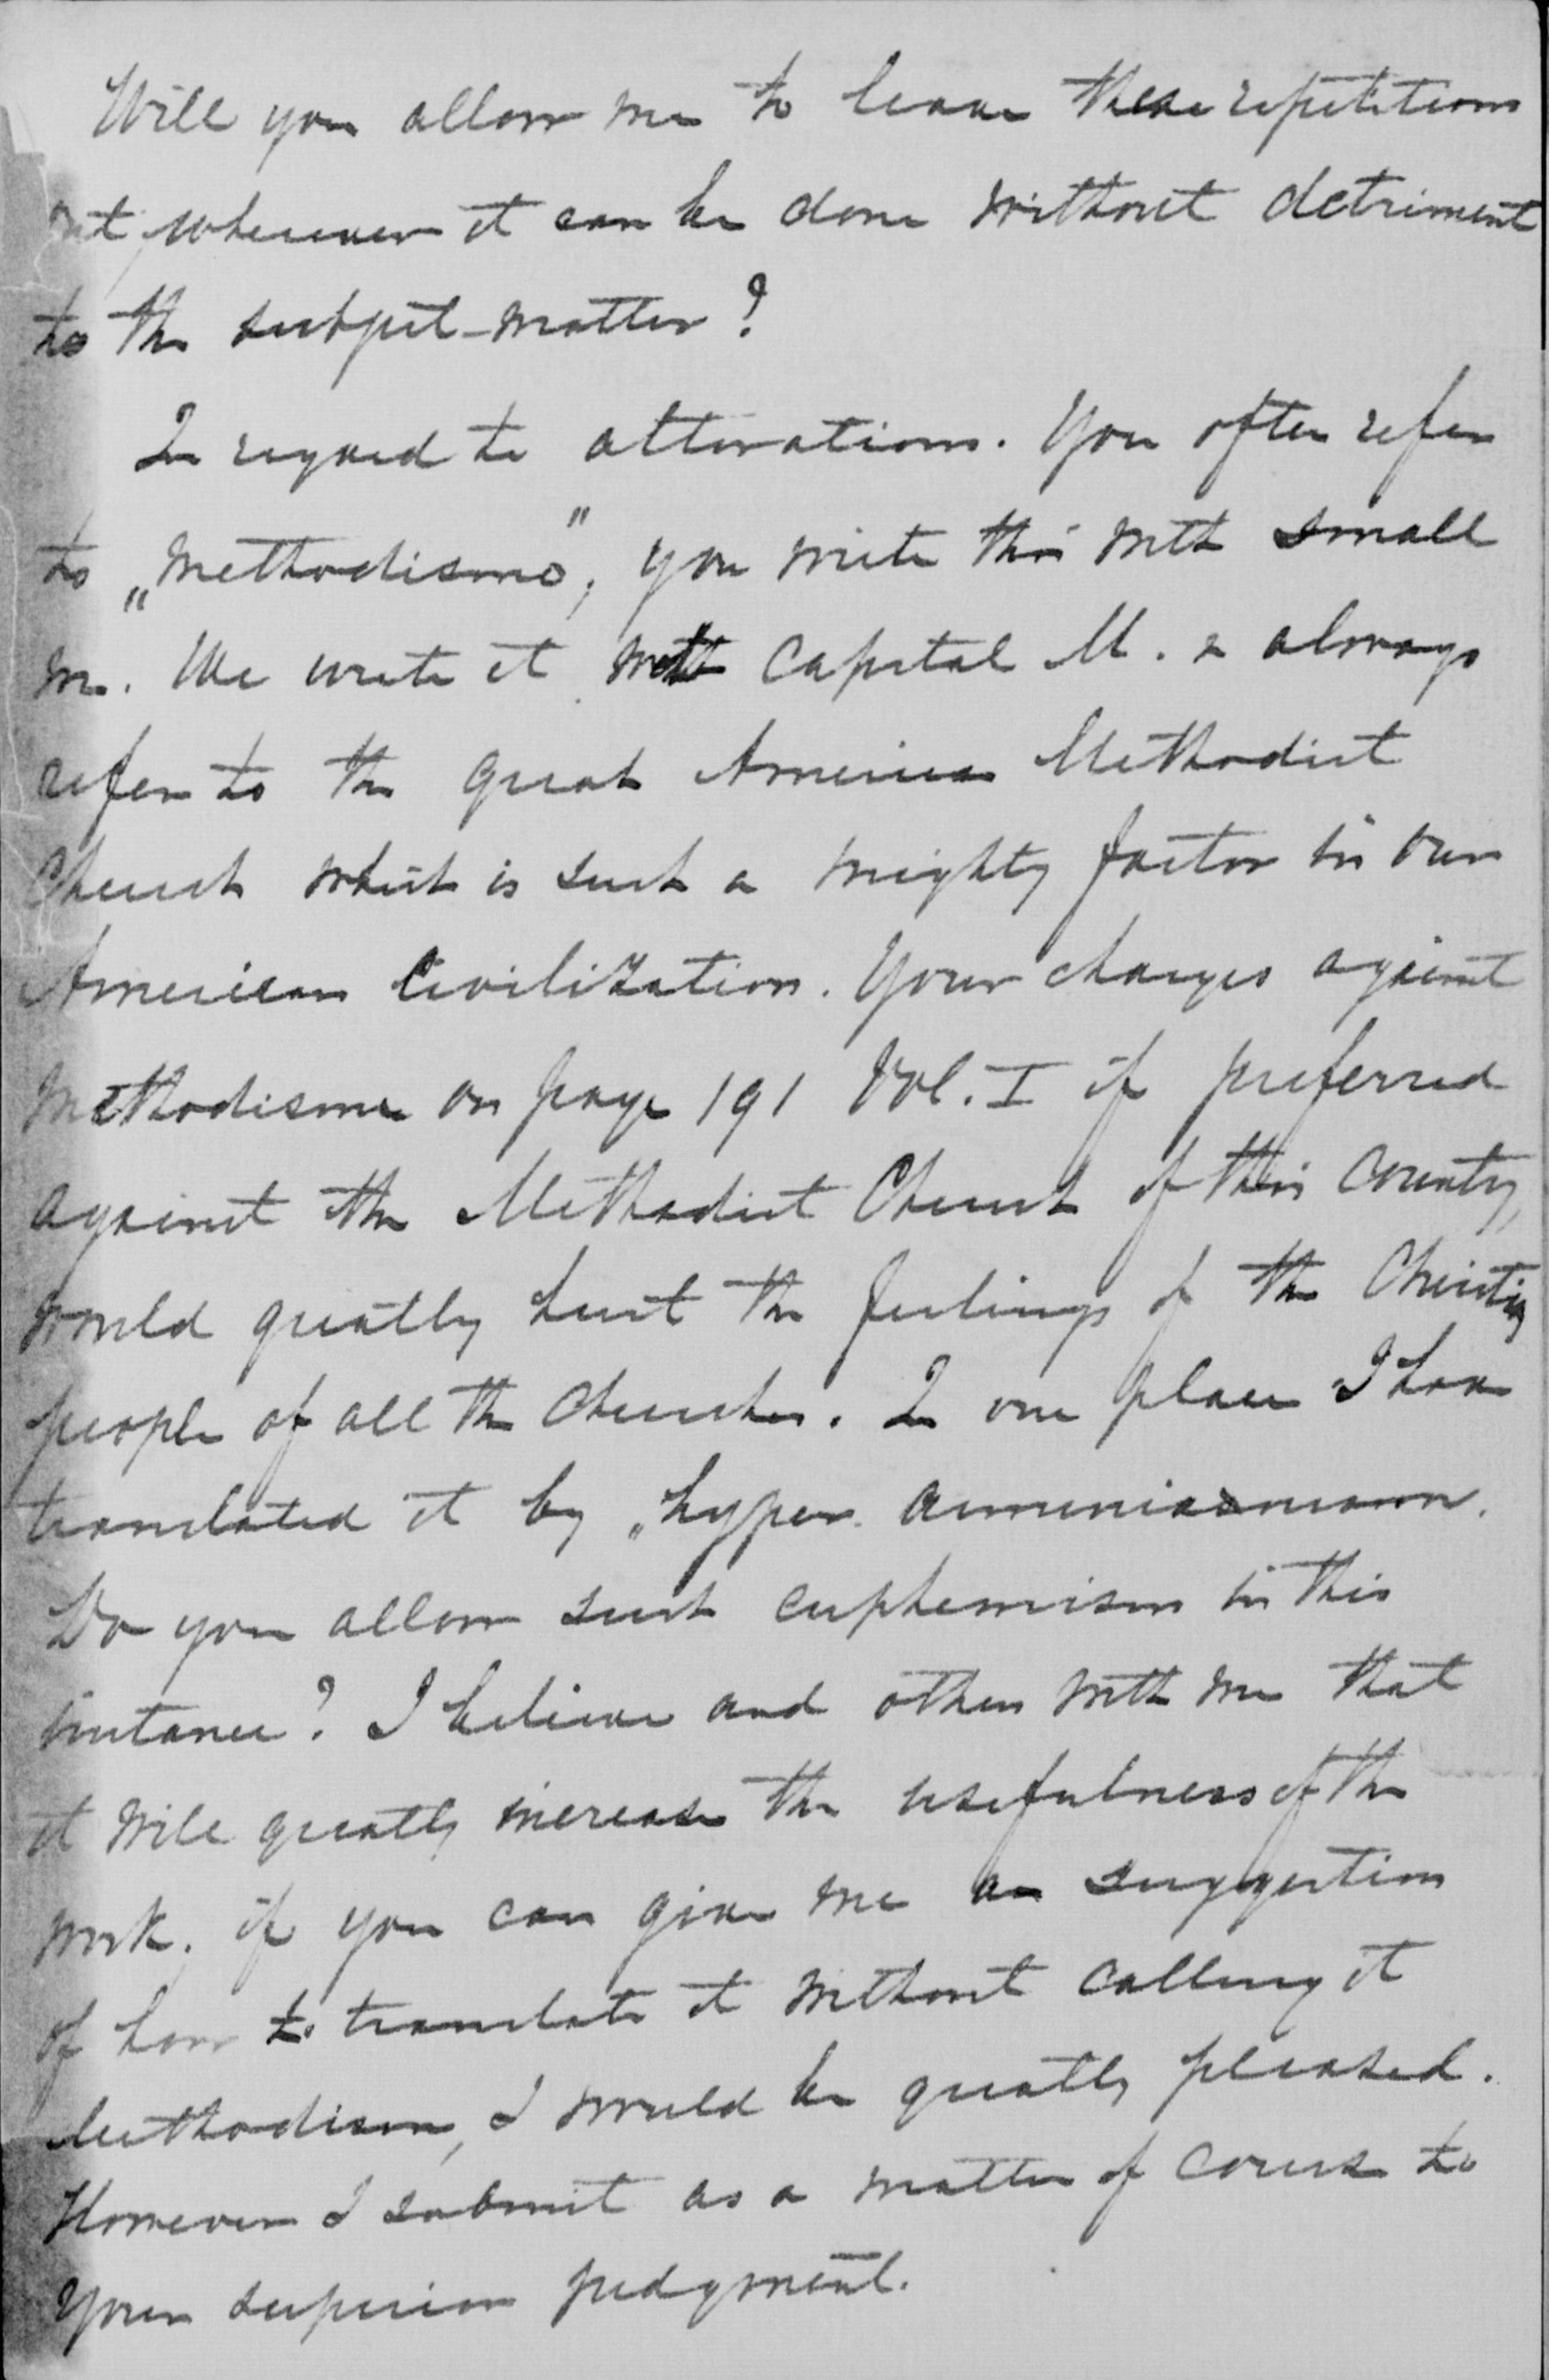 Will you allow me to leave these repetitions
out, wherever it can be done without detriment
to the subject-matter?
In regard to alterations. You often refer
to „methodisme", you write this with small
m. We write it with capital M. & always
refer to the great American Methodist
Church which is such a mighty factor in our
American Civilization. Your charges against
Methodisme on page 191 Vol. I if preferred
against the Methodist Church of this Country,
would greatly hurt the feelings of the Christian
people of all the Churches. In one place I have
translated it by „hyper
Do you allow such euphemism in this
instance? I believe and others with me that
it will greatly increase the usefulness of the
work, if you can give me a suggestion
of how to translate it without calling it
Methodism, I would be greatly pleased.
However I submit as a matter of course to
Your superior judgment.